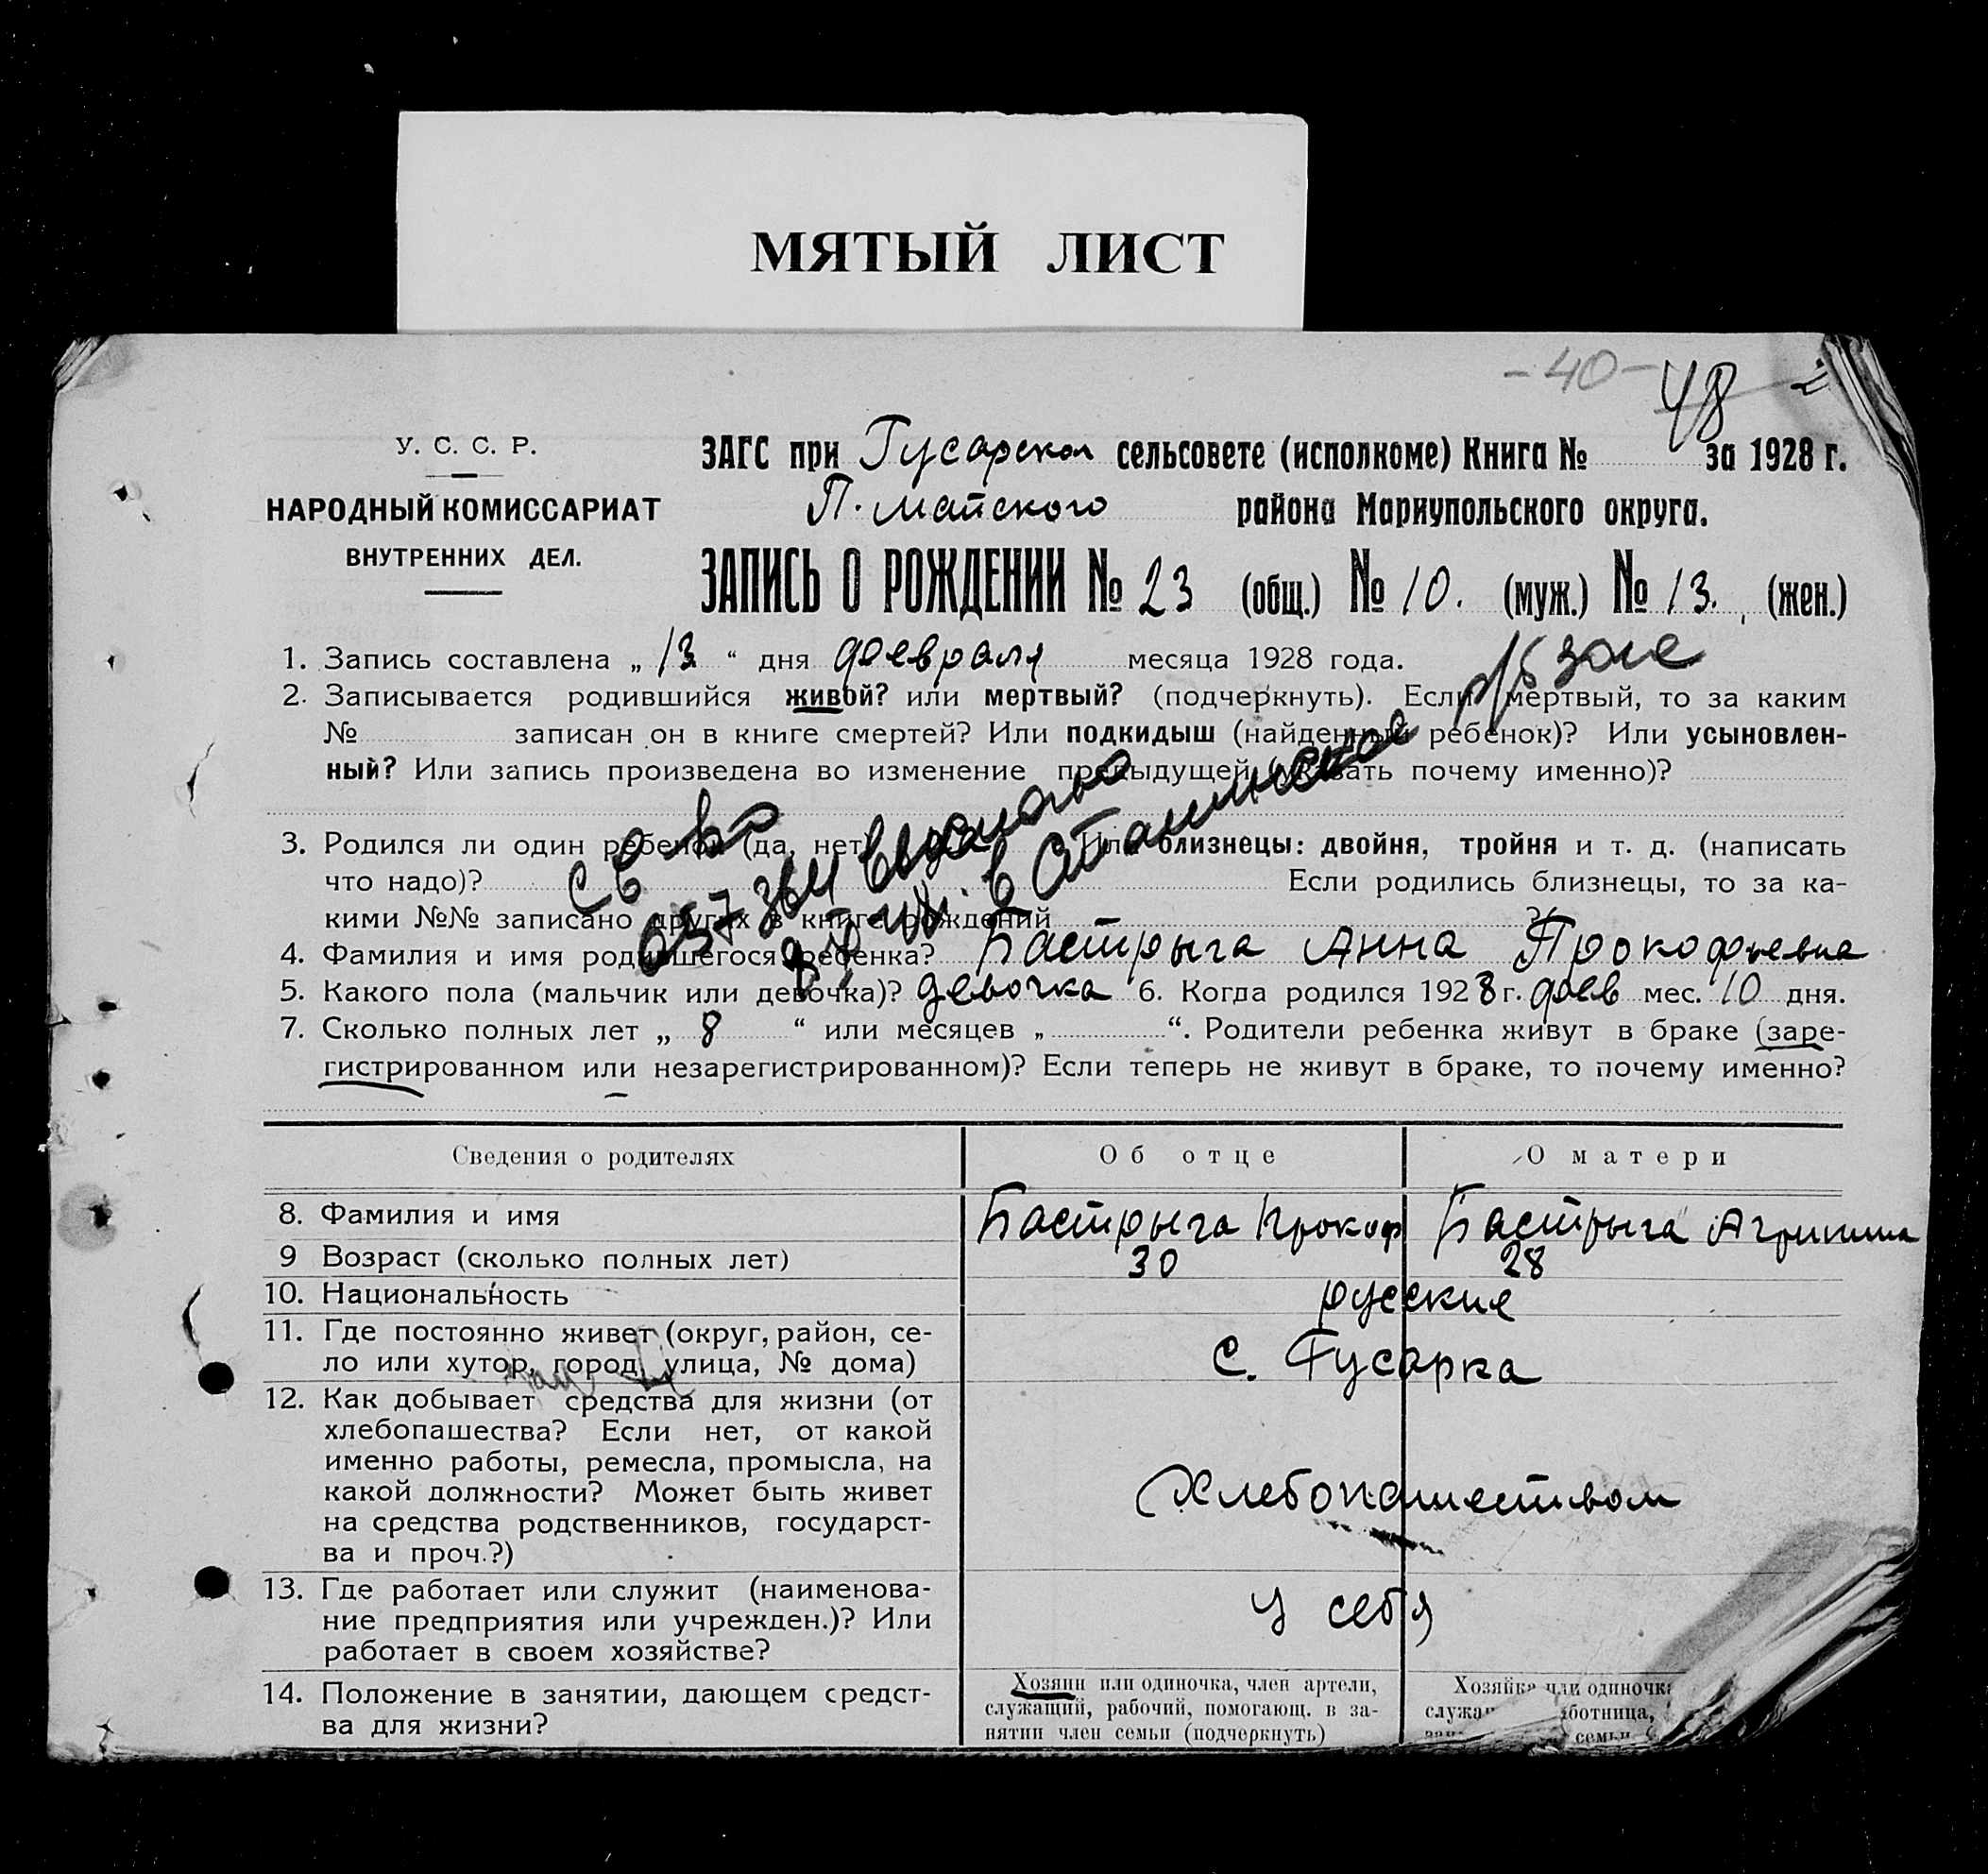 МЯТЫЙ ЛИСТ
-40- 48
У. С. С. Р.
НАРОДНЫЙ КОМИССАРИАТ
ВНУТРЕННИХ ДЕЛ.
ЗАГС при Гусарском сельсовете (исполкоме) Книга № за 1928 г.
П. майского района Мариупольского округа.
ЗАПИСЬ О РОЖДЕНИИ № 23 (общ.) № 10. (муж.) № 13. (жен.)
1. Запись составлена „ 13 “ дня февраля месяца 1928 года.
2. Записывается родившийся живой? или мертвый? (подчеркнуть). Если мертвый, то за каким
№ записан он в книге смертей? Или подкидыш (найденный ребенок)? Или усыновлен-
ный? Или запись произведена во изменение предыдущей (указать почему именно)?
3. Родился ли один ребенок (да, нет) Или близнецы: двойня, тройня и т. д. (написать
что надо)? Если родились близнецы, то за ка-
кими №№ записано других в книге рождений ?
св-во
выдано
в Сталинское
4. Фамилия и имя родившегося ребенка? Бастрыга Анна Прокофьевна
5. Какого пола (мальчик или девочка)? девочка 6. Когда родился 1928 г. фев мес. 10 дня.
7. Сколько полных лет „ 8 “ или месяцев „ “. Родители ребенка живут в браке (заре-
гистрированном или незарегистрированном)? Если теперь не живут в браке, то почему именно?
Сведения о родителях Об отце О матери
8. Фамилия и имя Бастрыга Прокоф Бастрыга Агрипина
9 Возраст (сколько полных лет) 30 28
10. Национальность русские
11. Где постоянно живет (округ, район, се-
ло или хутор, город, улица, № дома) с. Гусарка
12. Как добывает средства для жизни (от
хлебопашества? Если нет, от какой
именно работы, ремесла, промысла, на
какой должности? Может быть живет
на средства родственников, государст-
ва и проч.?)
Хлебопашеством
13. Где работает или служит (наименова-
ние предприятия или учрежден.)? Или
работает в своем хозяйстве?
у себя
14. Положение в занятии, дающем средст-
ва для жизни?
Хозяин или одиночка, член артели,
служащий, рабочий, помогающ. в за-
нятии член семьи (подчеркнуть)
Хозяйка или одиночка